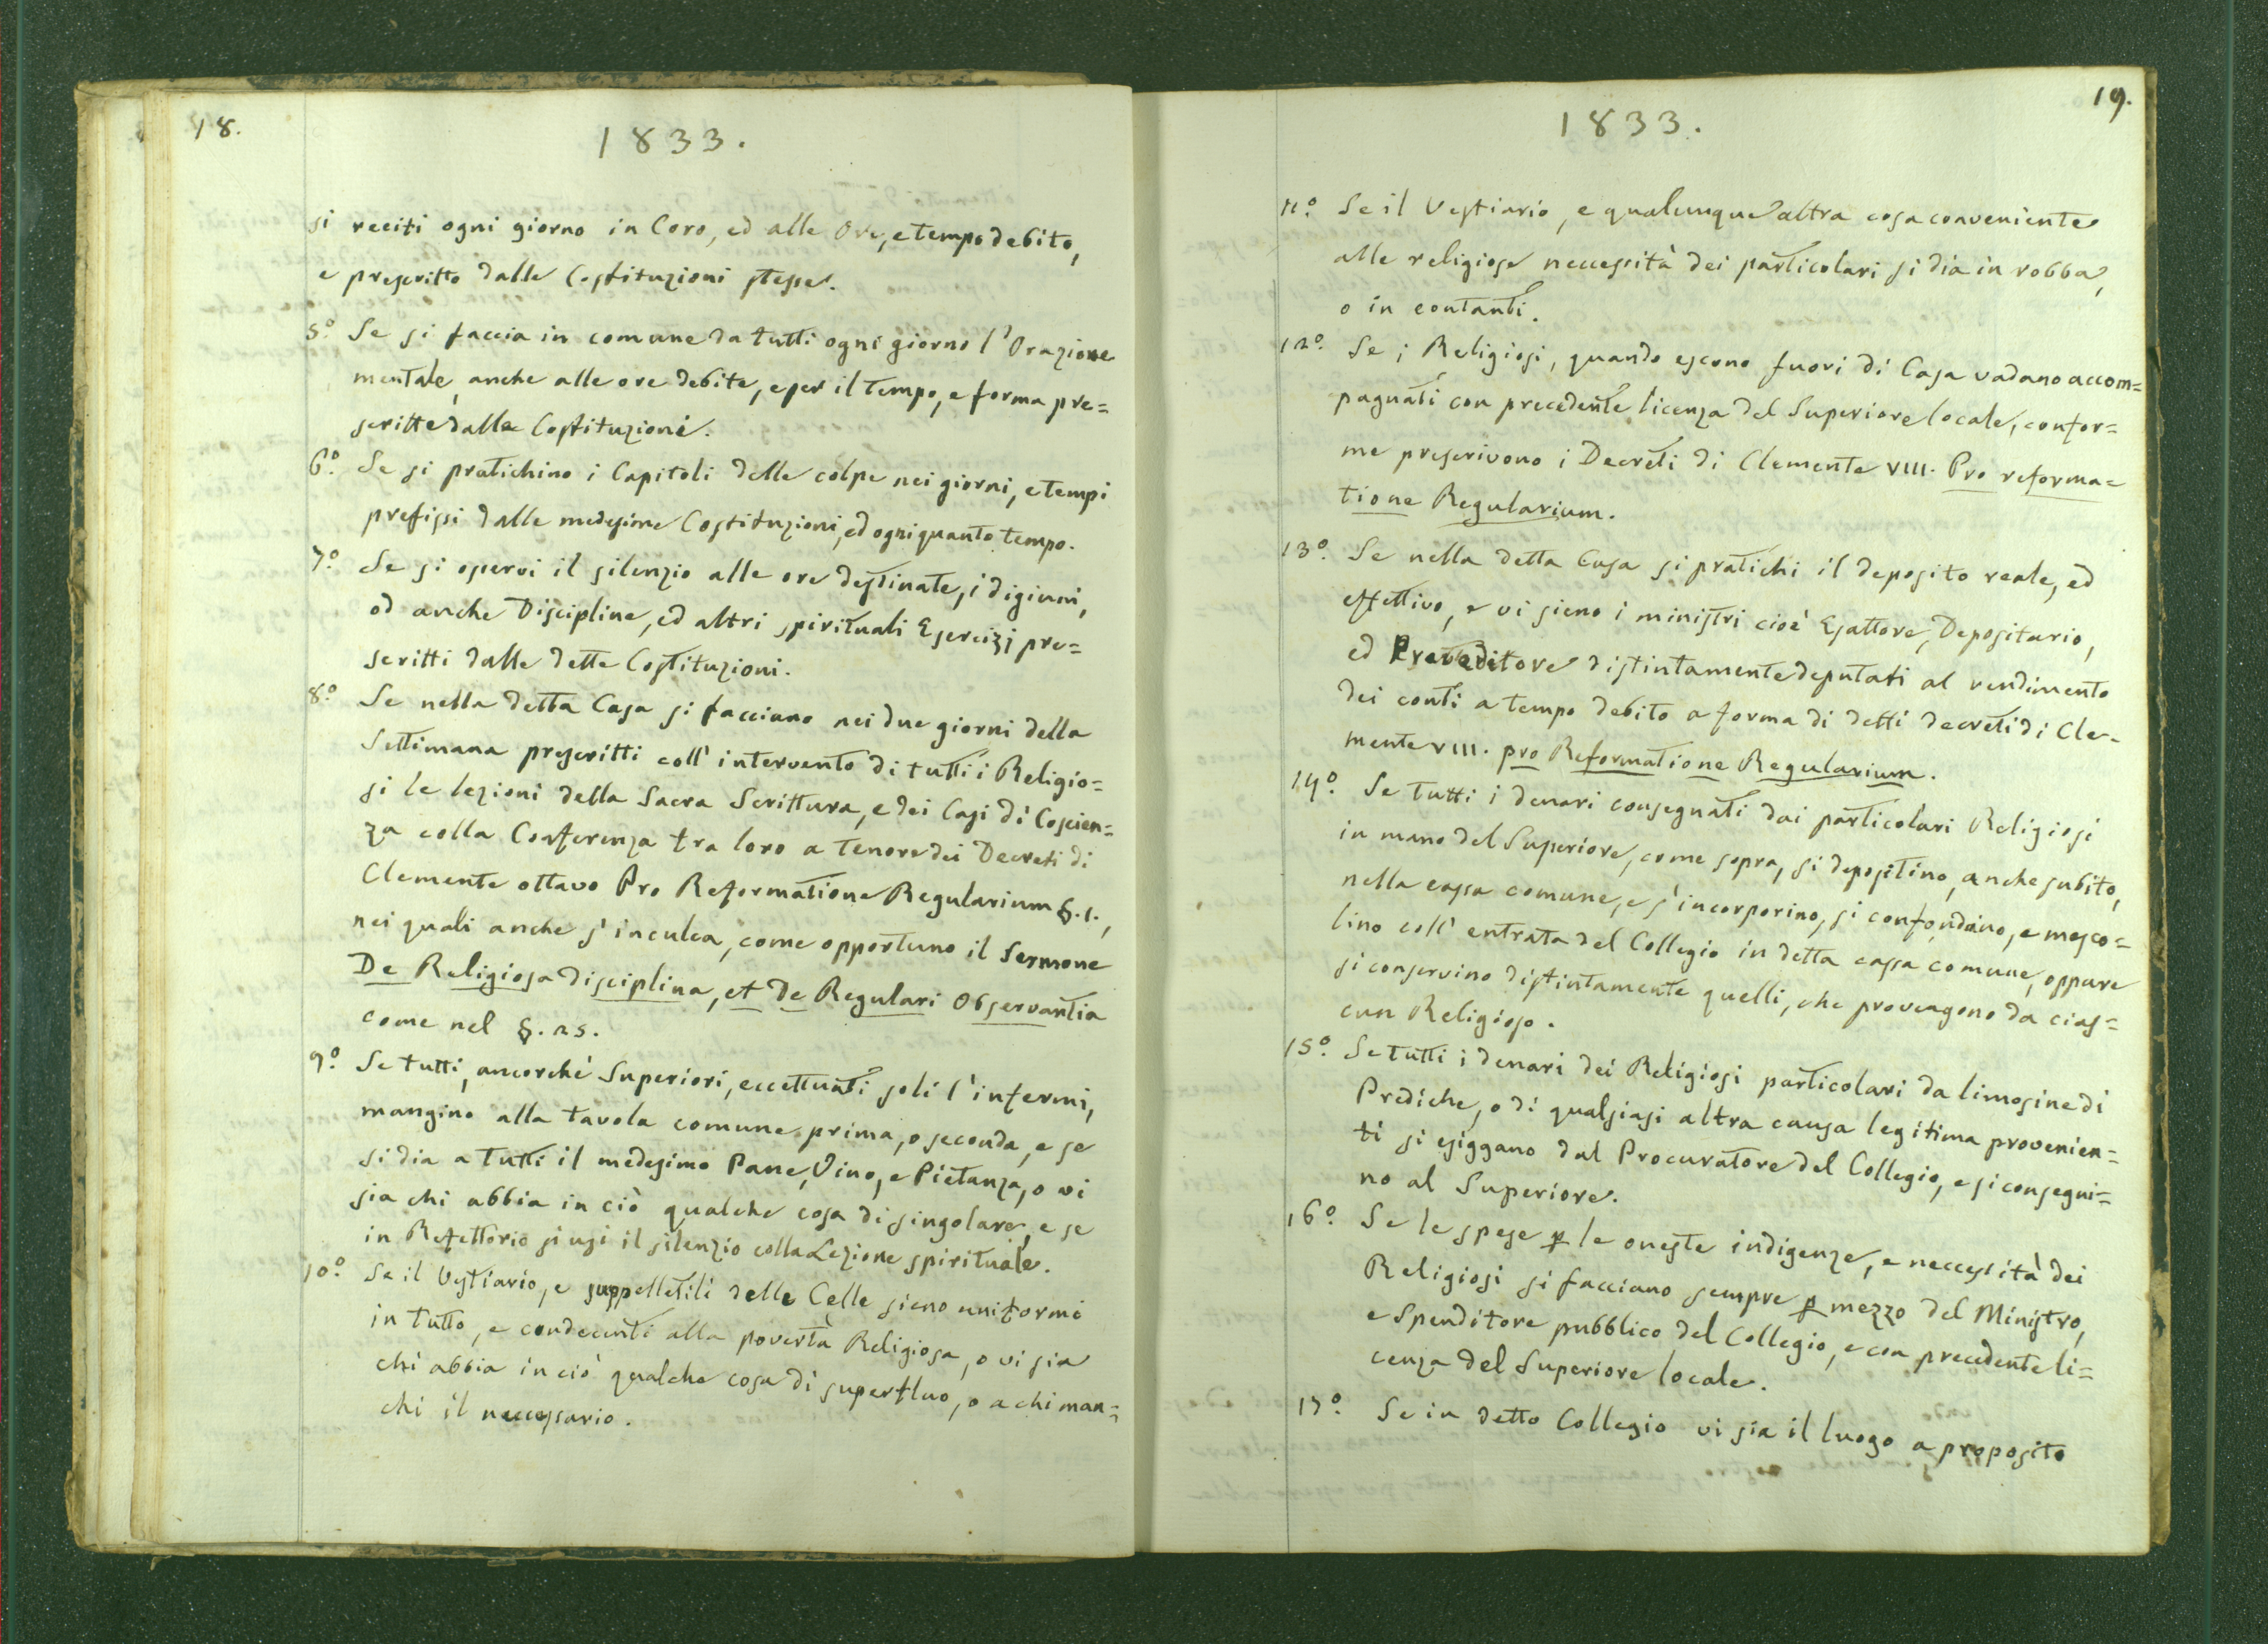 18.
1833.
si reciti ogni giorno in Coro, ed alle Ore, e tempo debito,
e prescritto dalle Costituzioni stesse.
5.º Se si faccia in comune da tutti ogni giorno l'Orazione
mentale, anche alle ore debite, e per il tempo, e forma pre=
scritte dalle Costituzioni.
6.º Se si pratichino i Capitoli delle colpe nei giorni, e tempi
prefissi dalle medesime Costituzioni, ed ogni quanto tempo.
7.º Se si osservi il silenzio alle ore destinate, i digiuni,
od anche Discipline, ed altri spirituali Esercizj pre=
scritti dalle dette Costituzioni.
8.º Se nella detta Casa si facciano nei due giorni della
Settimana prescritti coll' intervento di tutti i Religio=
si le lezioni della Sacra Scrittura, e dei Casi di Coscien=
za colla Conferenza tra loro a tenore dei Decreti di
Clemente ottavo Pro Reformatione Regularium §. 1.,
nei quali anche s' inculca, come opportuno il Sermone
De Religiosa disciplina, et de Regulari Observantia
come nel §. 25.
9.º Se tutti, ancorchè Superiori, eccettuati soli l' infermi,
mangino alla tavola comune prima, o seconda, e se
si dia a tutti il medesimo Pane, Vino, e Pietanza, o vi
sia chi abbia in ciò qualche cosa di singolare, e se
in Refettorio si usi il silenzio colla Lezione spirituale.
10.º Se il Vestiario, e suppelletili delle Celle sieno uniformi
in tutto, e condecenti alla povertà Religiosa, o vi sia
chi abbia in ciò qualche cosa di superfluo, o a chi man=
chi il neccessario.
19.
1833.
11.º Se il Vestiario, e qualunque altra cosa conveniente
alle religiose neccessità dei particolari si dia in robba,
o in contanti.
12.º Se i Religiosi, quando escono fuori di Casa vadano accom=
pagnati con precedente licenza del Superiore locale, confor=
me prescrivono i Decreti di Clemente VIII. Pro reforma=
tione Regularium.
13.º Se nella detta Casa si pratichi il deposito reale, ed
effettivo, e vi sieno i ministri cioè Esattore, Depositario,
ed Preveditore distintamente deputati al rendimento
dei conti a tempo debito a forma di detti decreti di Cle-
mente VIII. pro Reformatione Regularium.
14.º Se tutti i denari consegnati dai particolari Religiosi
in mano del Superiore, come sopra, si depositino, anche subito,
nella cassa comune, e s' incorporino, si confondano, e mesco=
lino coll' entrata del Collegio in detta cassa comune, oppure
si conservino distintamente quelli, che provengono da cias=
cun Religioso.
15.º Se tutti i denari dei Religiosi particolari da limosine di
Prediche, o di qualsiasi altra causa legitima provenien=
ti si esiggano dal Procuratore del Collegio, e si consegni=
no al Superiore.
16.º Se le spese p le oneste indigenze, e neccessità dei
Religiosi si facciano sempre p mezzo del Ministro,
e Spenditore pubblico del Collegio, e con precedente li=
cenza del Superiore locale.
17.º Se in detto Collegio vi sia il luogo a proposito